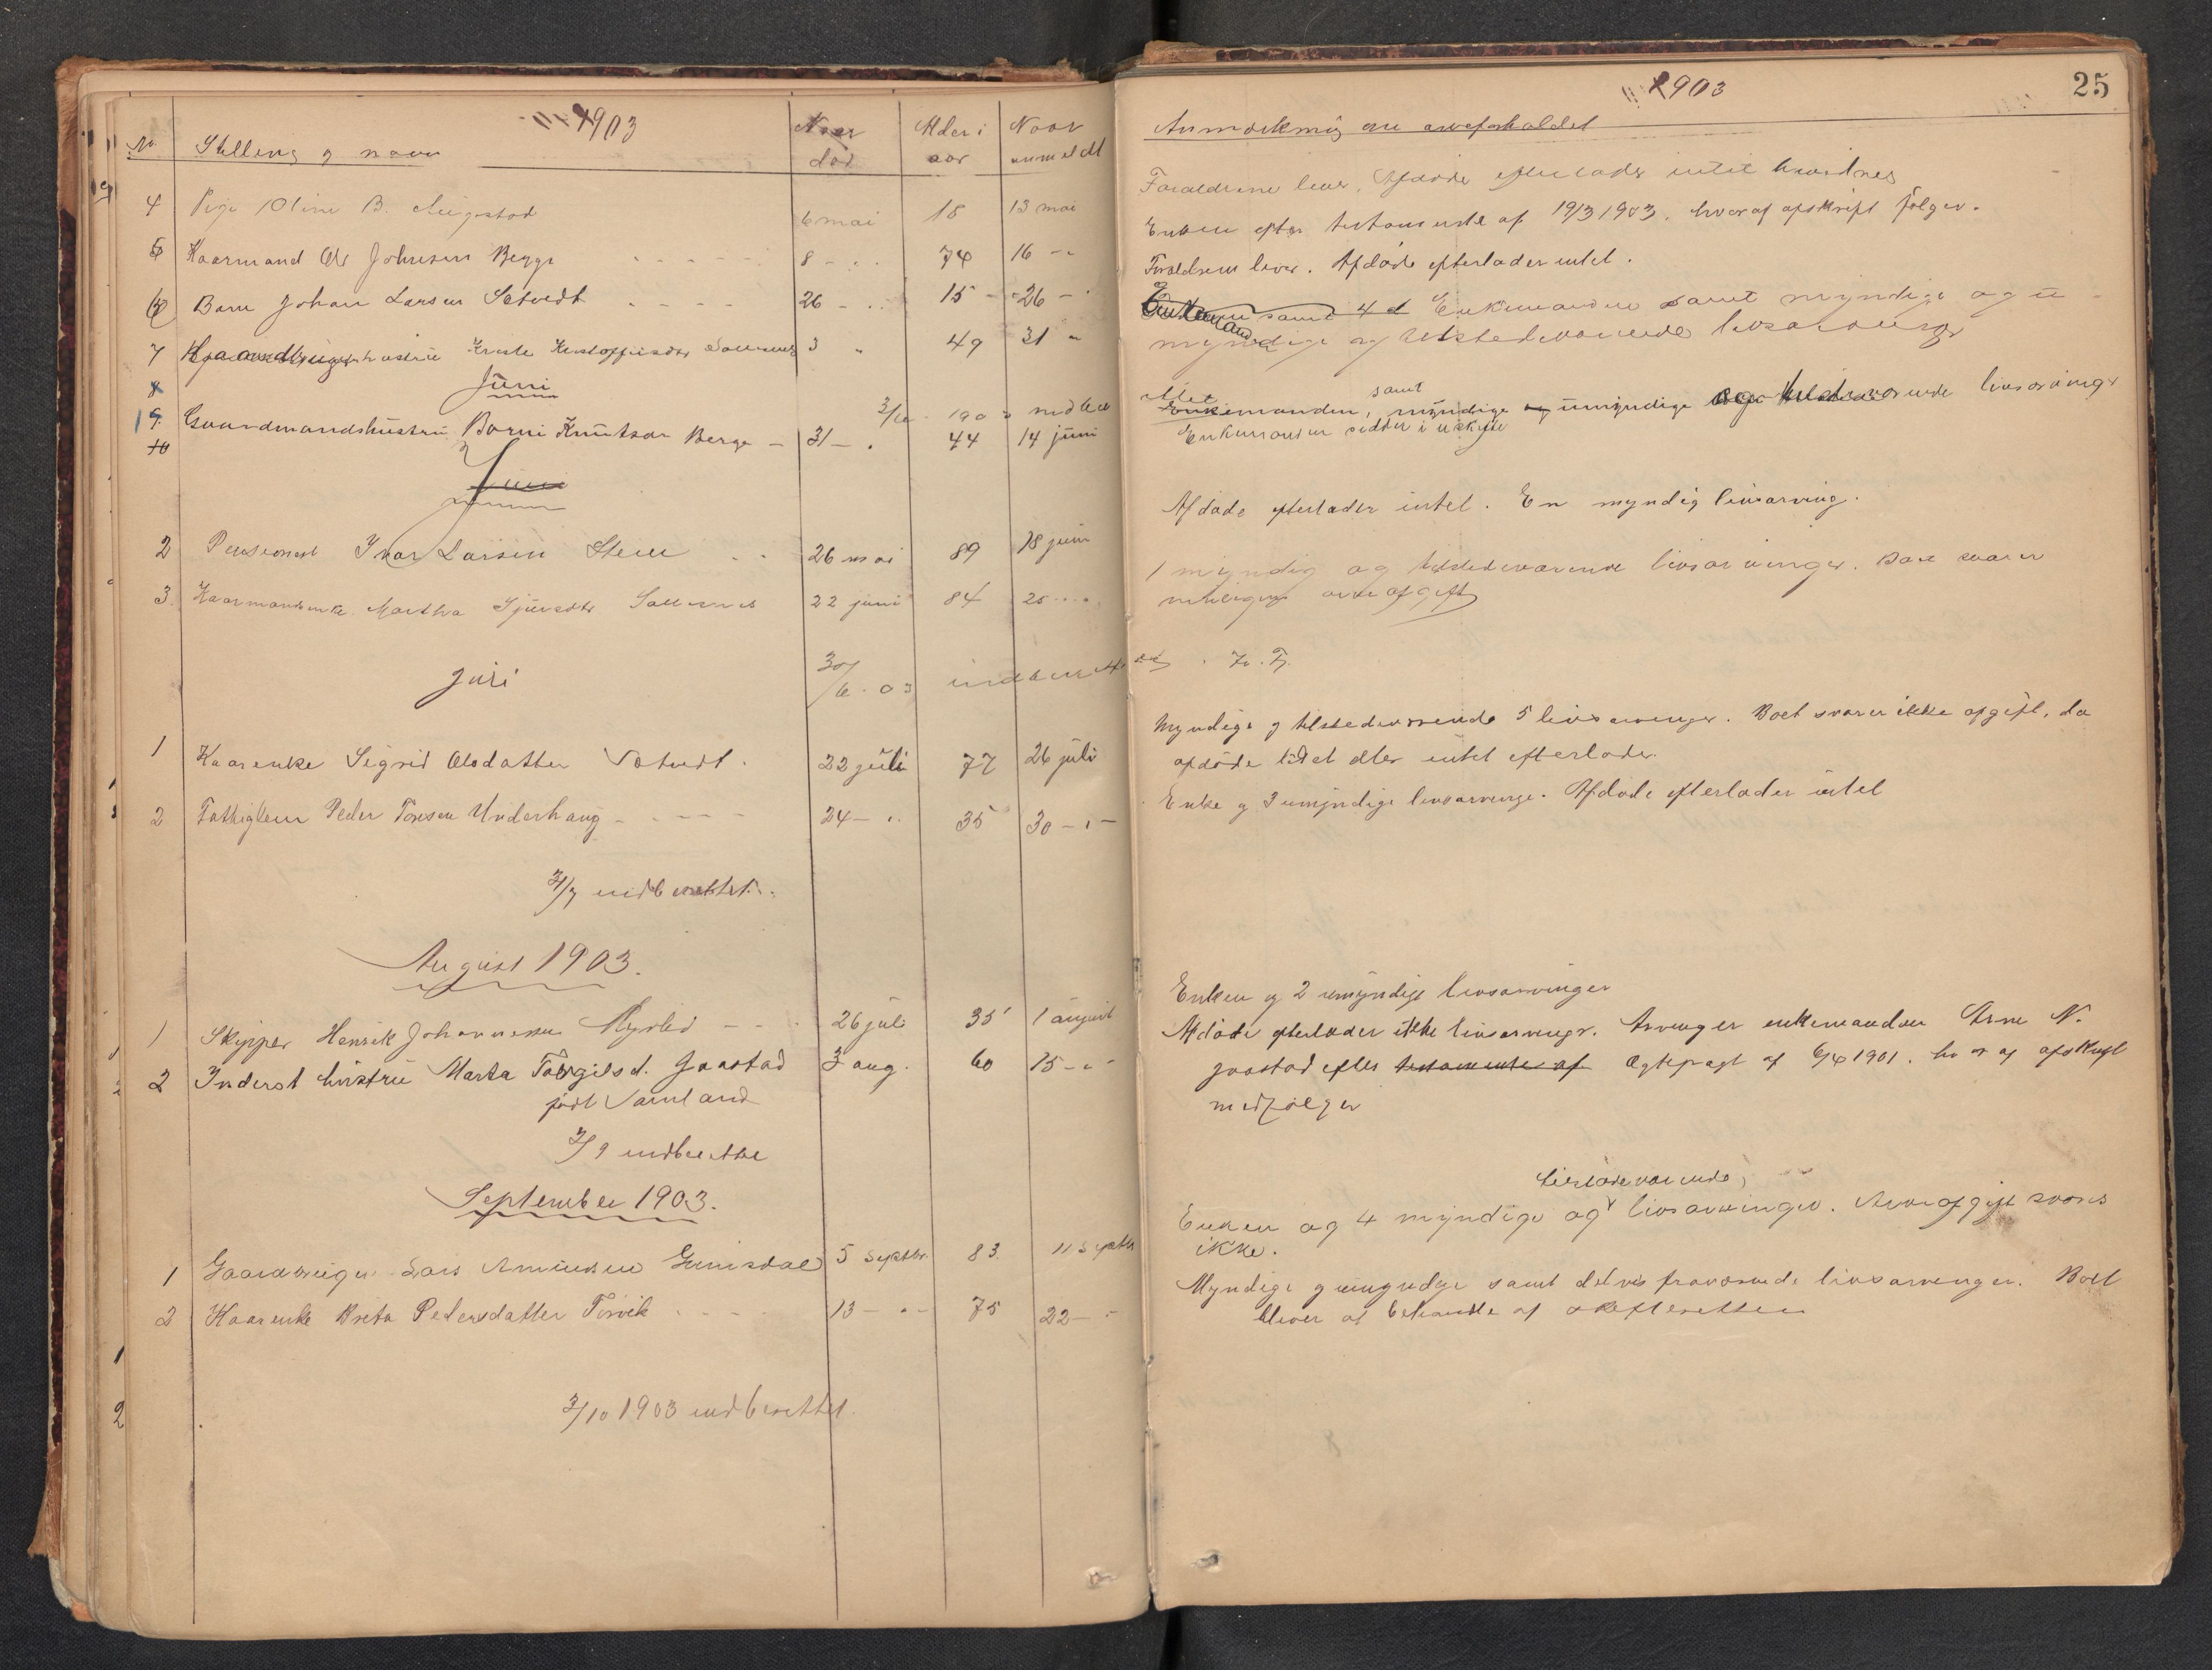 1903
No. Stilling og navn Naar død Alder i aar Naar anmeldt
4 Pige Oline B. Augestad 6 mai 18 13 mai
5 Kaarmand Ole Johnsen Berge 8 - „ 74 16 - „
6 Barn Johan Larsen Sætvedt 26 - „ 15 26 - „
7 Gaardbrugerhustru Kristofersdtr 3 „ 49 31 „
Juni
8
3/6 1903 indber
19. Gaardmandshustru Borni Knutsdr Berge - 31 - „ 44 14 juni
10
Juni
2 Pensionist Ivar Larsen Steen 26 mai 89 18 juni
3. Kaarmandsenke Martha Sjursdtr 22 juni 84 25 „
Juli
30/6. 03 indberettet
1 Kaarenke Sigrid Olsdatter 22 juli 77 26 juli
2 Fattiglem Peder Tøresen Underhaug 24 - „ 35 30 - „ -
3/7 indberettet
August 1903.
1 Skipper Henrik Johannessen 26 juli 35 1 august
2 Inderst hustru Marta Torgilsd. Jaastad 3 aug. 60 15 - „
født
3/9 indberettet
September 1903.
1 Gaardbruger Lars Amundsen 5 septbr. 83 11 septbr
2 Kaarenke Brita Pedersdatter Torvik 13 - „ - 75 22 -
3/10 1903 indberettet.
1903
25
Anmærkning om arveforholdet
Forældrene lever. Afdøde efterlader intet
Enken efter testamente af 19/3 1903, hvoraf afskrift følger.
Forældrene lever. Afdøde efterlader intet.
Enken samt 4 Enkemanden samt myndige og u-
myndige og tilstedeværende livsarvinger
samt
Enkemanden, myndige og umyndige og tilstedeværende livsarvinger
Enkemanden sidder i uskifte
Afdøde efterlader intet. En myndig livsarving.
1 myndig og tilstedeværende livsarvinger. Boet svarer
arveafgift
Myndige og tilstedeværende 5 livsarvinger. Boet svarer ikke afgift, da
afdøde lidet eller intet efterlader.
Enke og 3 umyndige livsarvinge. Afdøde efterlader intet
Enken og 2 umyndige livsarvinger
Afdøde efterlader ikke livsarvingr. Arving er enkemanden Arne N.
Jaastad efter testamente af Ægtepagt af 6/4 1901. hvoraf afskrift
medfølger
tilstedeværende
Enken og 4 myndige og livsarvinger. Arveafgift svares
ikke.
Myndige og umyndige samt delvis fraværende livsarvinger. Boet
bliver at behandle af skifteretten